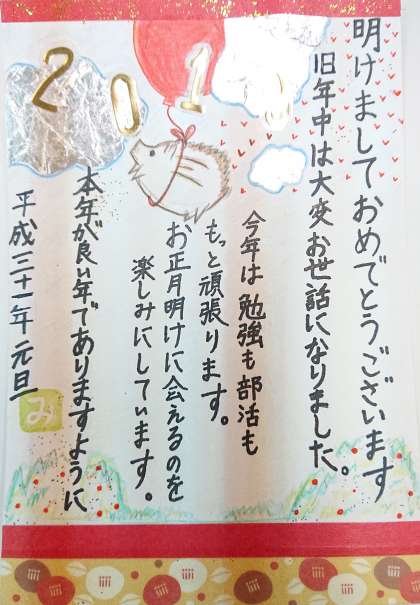 明けましておめでとうございます
旧年中は大変お世話になりました。
今年は勉強も部活も
もっと頑張ります。
お正月明けに会えるのを
楽しみにしています。
本年が良い年でありますように
平成三十一年 元旦
み
201